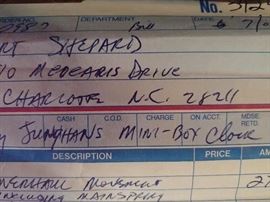 No. 512
ORDER NO. DEPARTMENT DATE
Bill 7/
RT SHEPARD
10 MEDEARIS DRIVE
CHARLOTTE N.C. 28211
CASH C.O.D. CHARGE ON ACCT. MDSE. RETD.
JUNGHANS MINI-BOX CLOCK
DESCRIPTION PRICE AM
OVERHAUL MOVEMENT
INCLUDING MAINSPRING